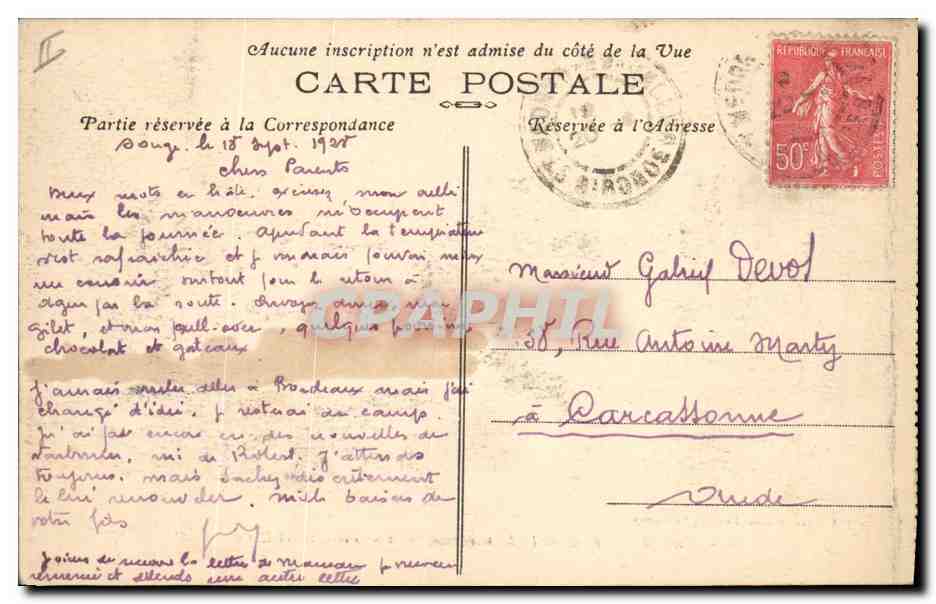 II
Aucune inscription n'est admise du côté de la Vue
CARTE POSTALE
Partie réservée à la Correspondance
Réservée à l'Adresse
RÉPUBLIQUE FRANÇAISE
50c
POSTES
GIRONDE
Souge, le 18 Sept. 1928
chers Parents
Deux mots en hâte. excusez mon oubli
mais les manoeuvres m'occupent
toute la journée. Cependant la température
s'est rafraîchie et je voudrais pouvoir mieux
me couvrir surtout pour le retour à
Agen par la route. Envoyez donc mon
gilet, et mon pull-over, quelques
chocolat et gateaux
J'aurais aller à Bordeaux mais j'ai
changé d'idée, je resterai au camp.
Je n'ai pas encore eu des nouvelles de
ni de Robert. J'attends
toujours. mais
le lui renouveler. mille baisers de
votre fils
de recevoir la lettre de maman
et attends une autre lettre
Monsieur Gabriel Devot
38, Rue Antoine Marty
à Carcassonne
Aude
CPAPHIL